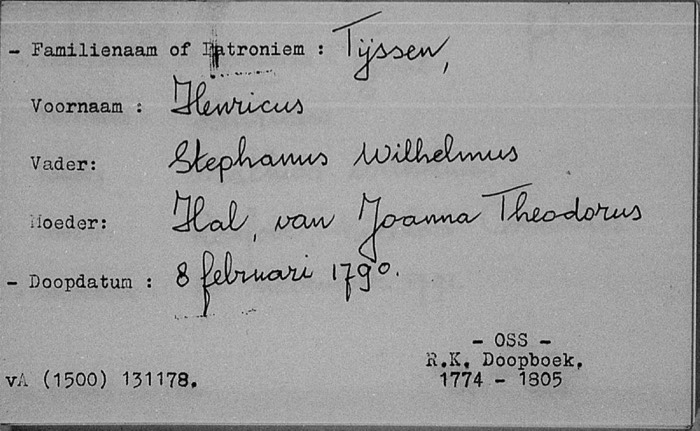 - Familienaam of Patroniem : Tijssen,
Voornaam : Henricus
Vader: Stephanus Wilhelmus
Moeder: Hal, van Joanna Theodorus
- Doopdatum : 8 februari 1790.
- OSS -
R.K. Doopboek.
vA (1500) 131178.
1774 - 1805